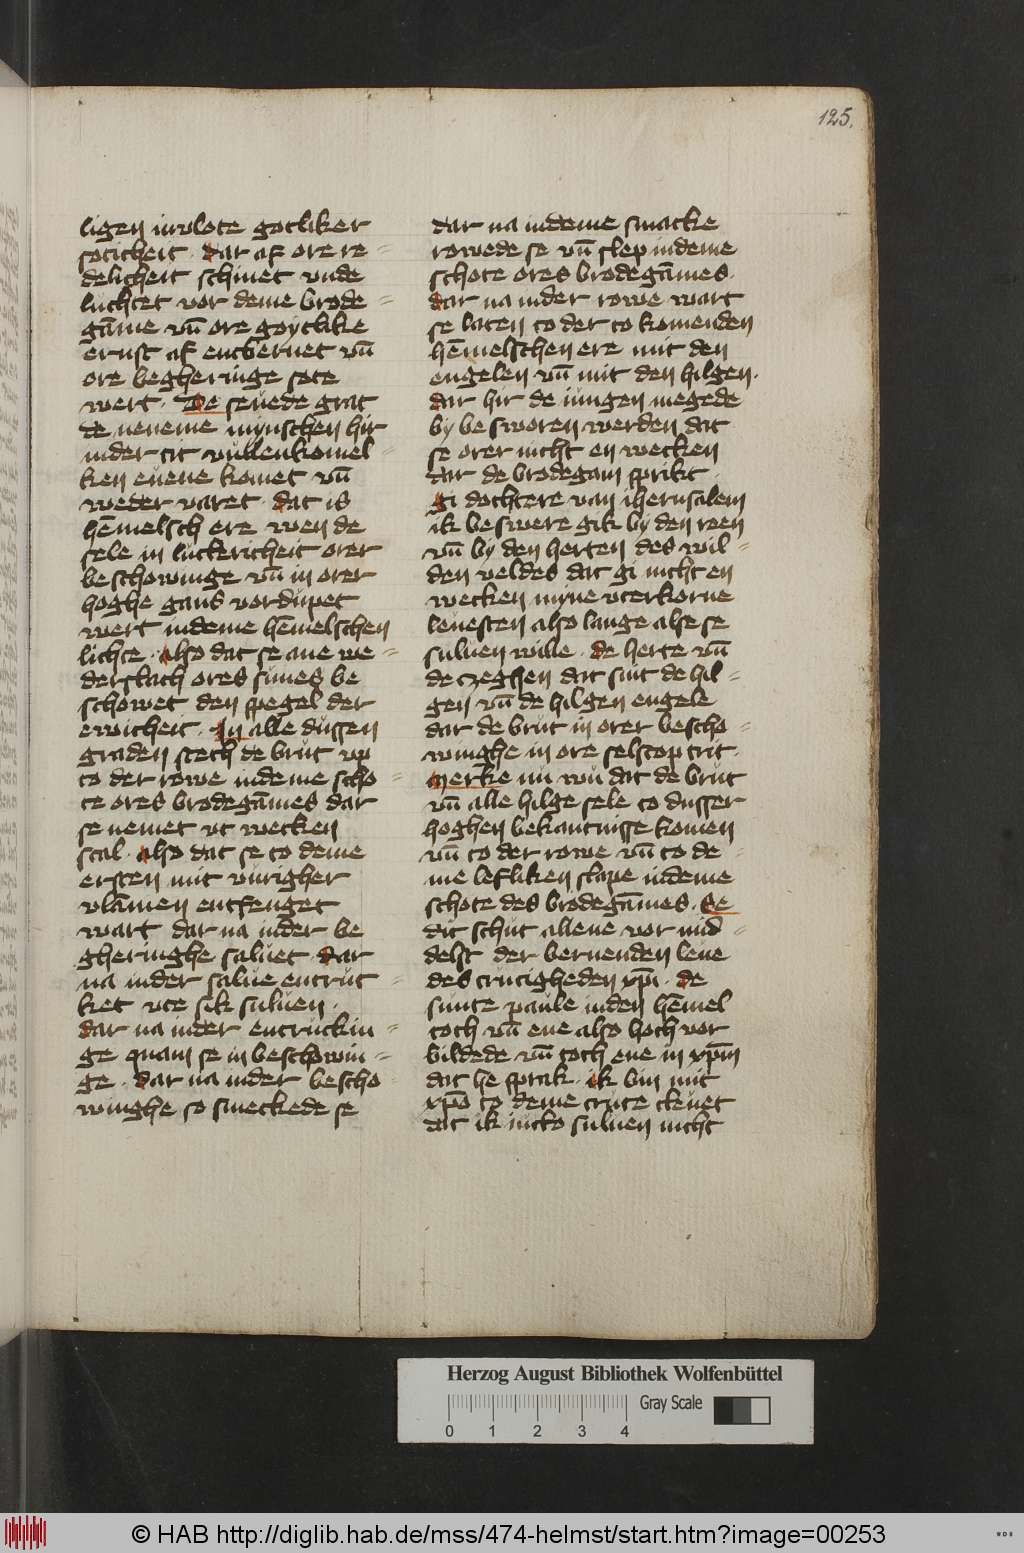 125.
ligen invlote gotliker
soticheit · dar af ore re-
delicheit schinet vnde
luchtet vor deme brode-
gāme vn̄ ore goytlike
ernst af entbernet vn̄
ore begheringe sote
wert · De seuede grat
de neneme mynschen hir
inder tit vullenkomel-
ken euene komet vn̄
weder varet · dat is
hēmelsch ere wen de
sele in luckericheit orer
beschowinge vn̄ in orer
hoghe gans vordupet
wert indeme hēmelschen
lichte · also dat se ane we-
derslach ores sinnes be
schowet den spegel der
ewicheit · In alle dussen
graden stech de brut vp
to der rowe indeme scho-
te ores brodegāmes dar
se nemet vt wecken
scal · also dat se to deme
ersten mit vurigher
vlāmen entfenget
wart dar na inder be
gheringhe saluet · dar
na inder salue entruc-
ket vte sik suluen ·
dar na inder entruckin-
ge quam se in beschowin-
ge · dar na inder bescho-
winghe so smeckede se
dar na indeme smacke
rowede se vn̄ slep indeme
schote ores brodegāmes ·
dar na inder rowe wart
se laten to der to komenden
hēmelschen ere mit den
engelen vn̄ mit den hilgen ·
dar hir de iungen megede
by besworen werden dat
se orer nicht en wecken
dar de brodegam sprikt ·
gi dochtere van iherusalem
ik beswere gik by den reen
vn̄ by den herten des wil-
den veldes dat gi nicht en
wecken myne vterkorne
leuesten also lange alse se
suluen wille · de herte vn̄
de czeghen dat sint de hil-
gen vn̄ de hilgen engele
dar de brut in orer bescho-
winghe in ore selscop trit ·
Merke nu wu dat de brut
vn̄ alle hilge sele to dusser
hoghen bekantnisse komen
vn̄ to der rowe vn̄ to de-
me lefliken slape indeme
schote des brodegāmes · Se
dit schut allene vor mid-
delst der bernenden leue
des crucigheden xp̄i · de
sunte paule inden hēmel
toch vn̄ ene also hoch vor
bildede vn̄ toch ene in xp̄m
dat he sprak · ik bin mit
xp̄o to deme cruce cleuet
dat ik iucto suluen nicht
Herzog August Bibliothek Wolfenbüttel
Gray Scale
0 1 2 3 4
© HAB http://diglib.hab.de/mss/474-helmst/start.htm?image=00253
WDB